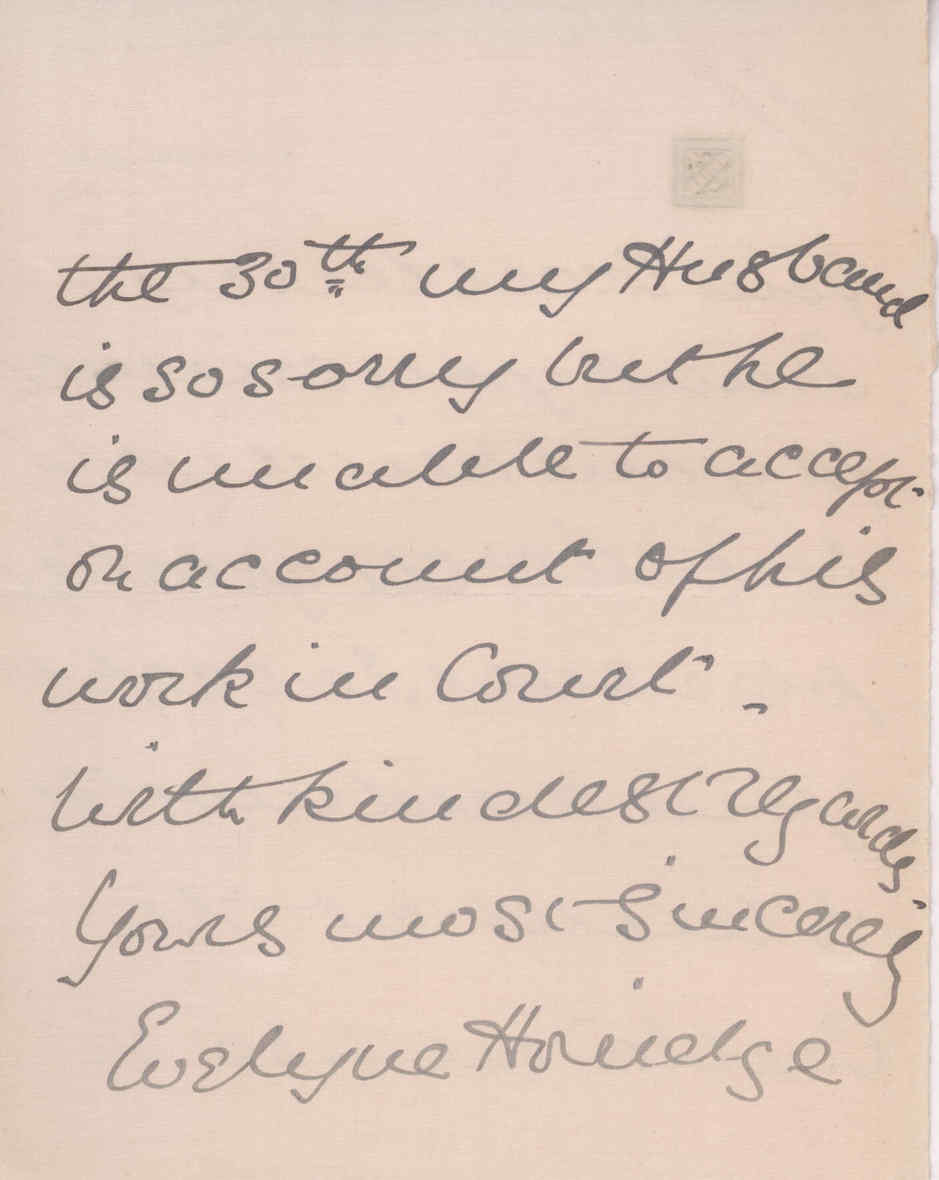 the 30th my Husband
is so sorry but he
is unable to accept
on account of his
work in Court.
With kindest regards,
Yours most sincerely
Evelyne Horridge